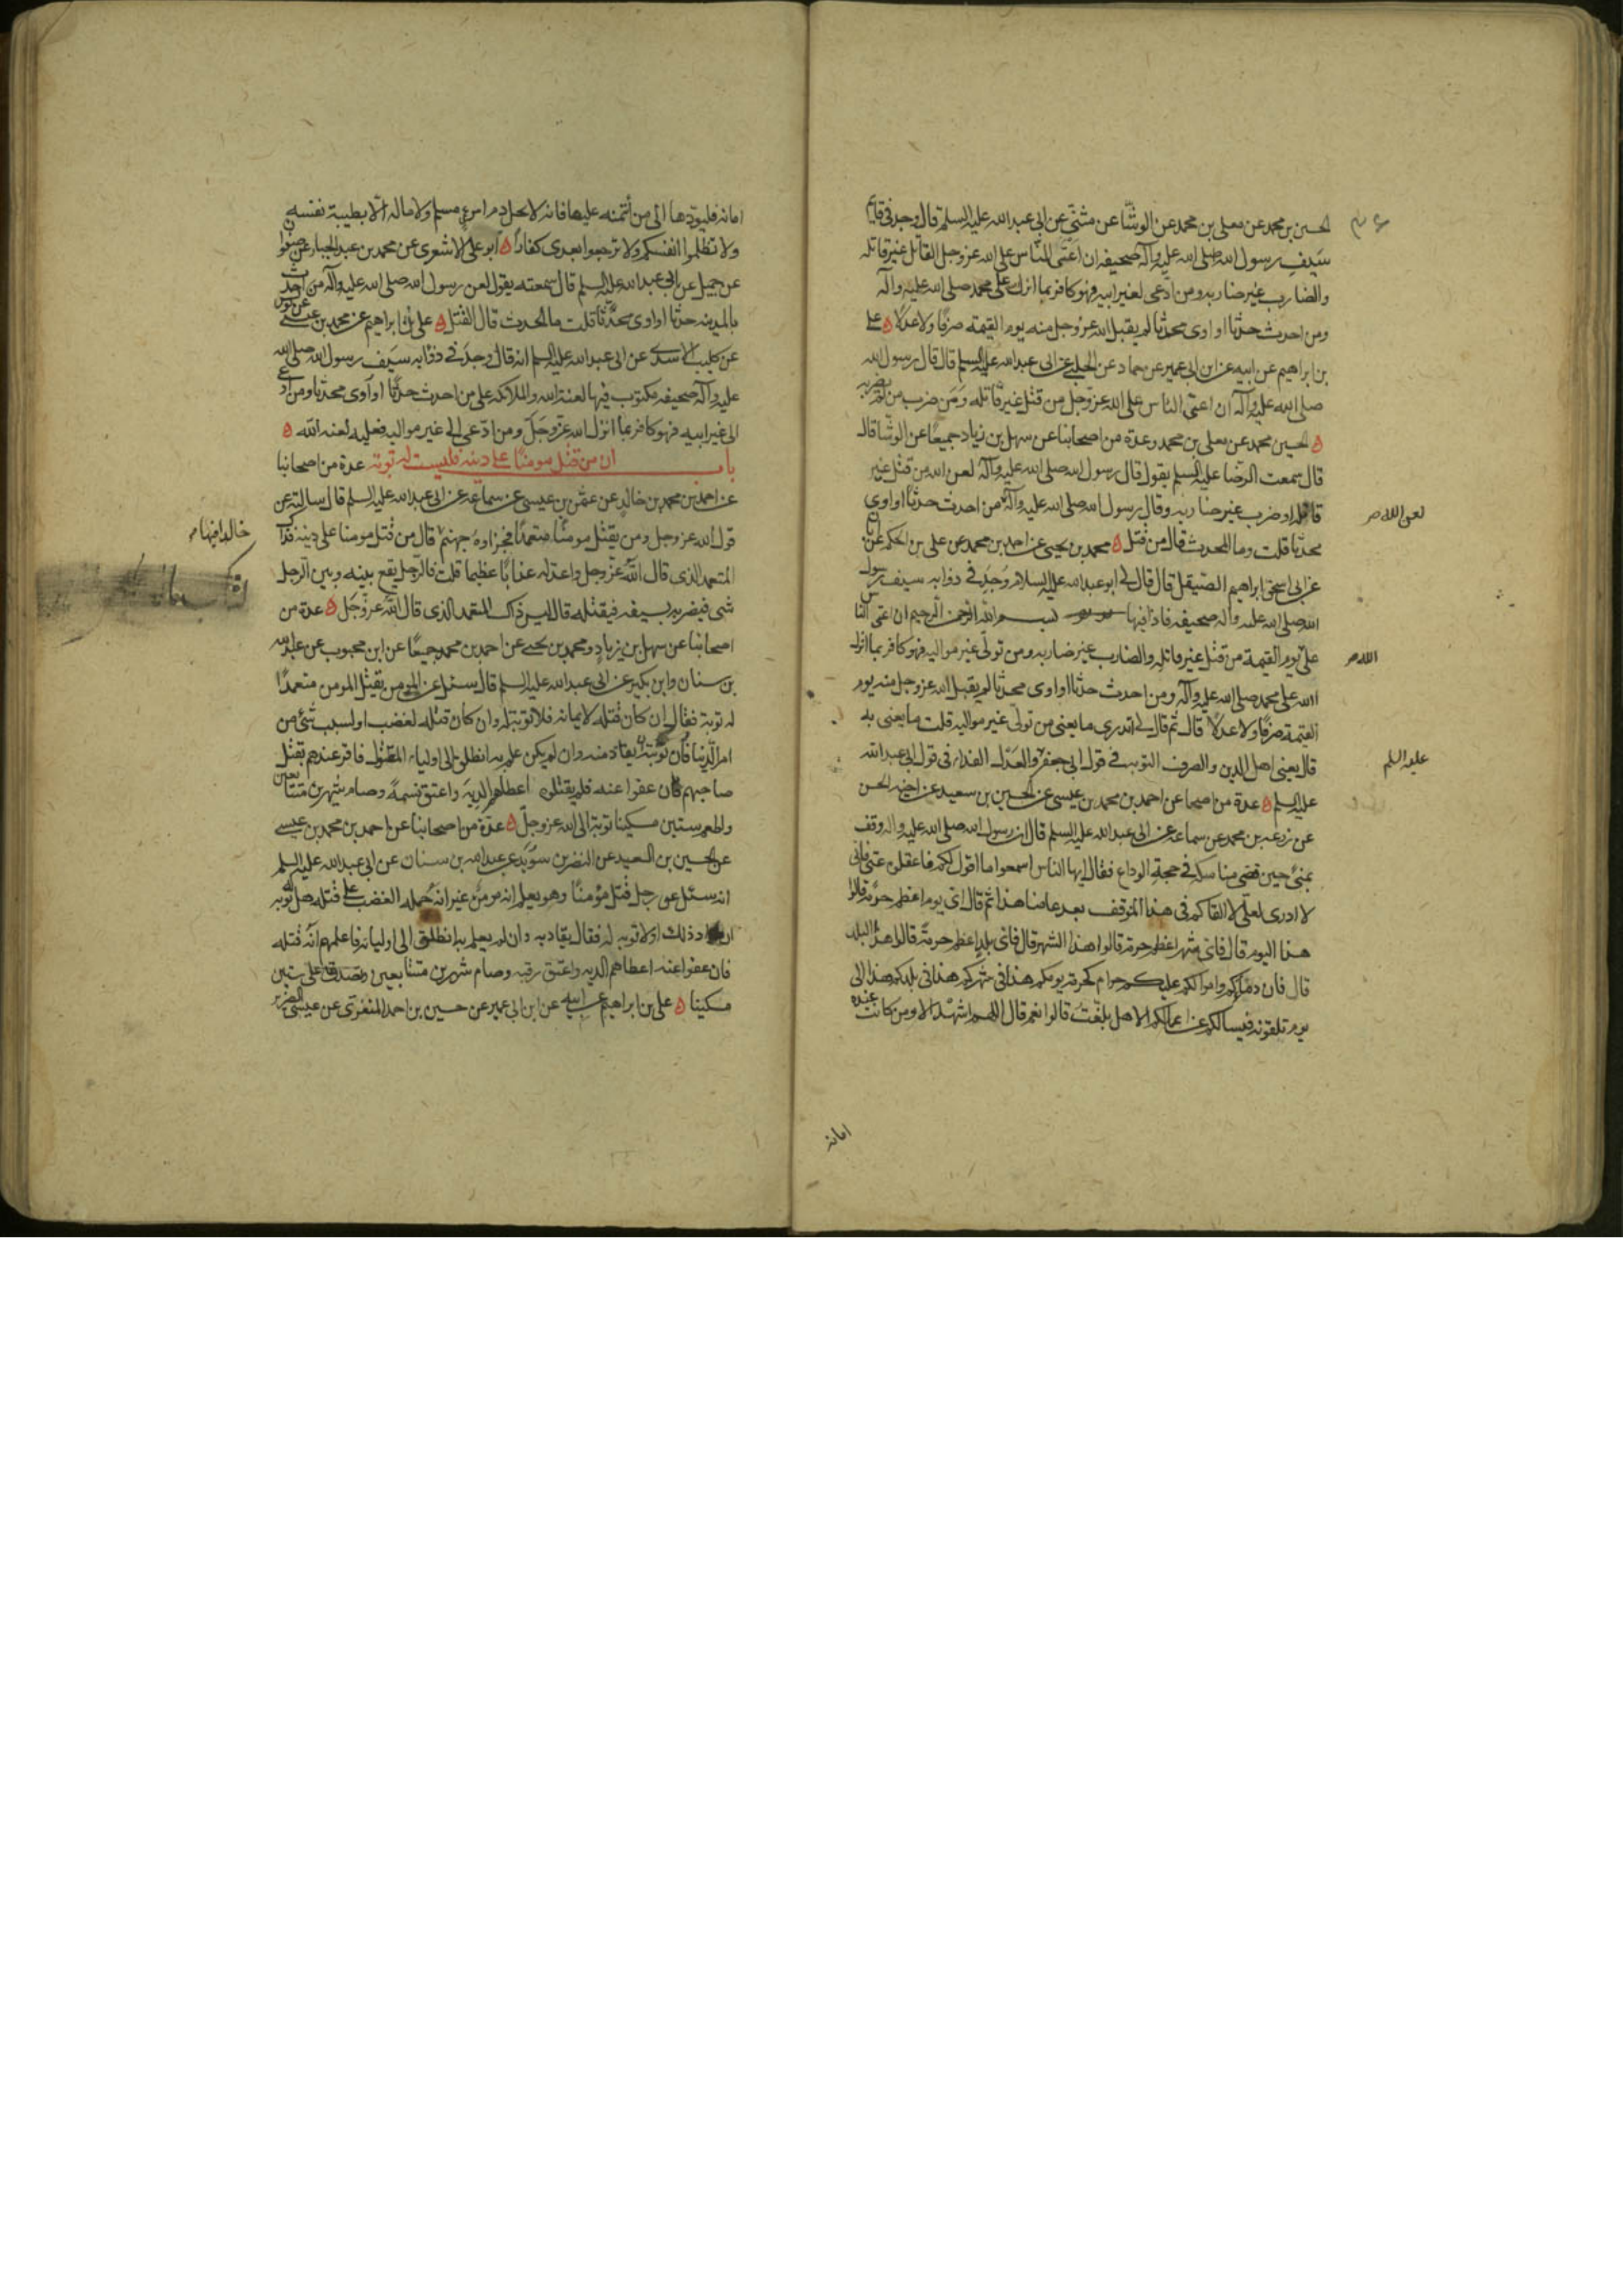 الحسين بن محمد عن معلى بن محمد عن الوشّا عن مثنّى عن ابى عبد الله عليه السلم قال وجد فى قايم
سَيفِ رسول الله صلى الله عليه وآله صحيفه ان اَعْتَى النّاس على الله عز وجل القاتل غير قاتله
والضارب غير ضاربه ومن ادّعى لغير ابيه فهو كافر بما انزل على محمد صلى الله عليه وآله
ومن احدث حدثا او اوى محدثا لم يقبل الله عز وجل منه يوم القيمة صرفًا ولا عدلًا ه على
بن ابراهيم عن ابيه عن ابن ابى عمير عن حماد عن الحلبى عن ابى عبد الله عليه السلم قال قال رسول الله
صلى الله عليه وآله ان اعتى الناس على الله عز وجل من قتل غير قاتله وَمَن ضرب من لم يضربه
ه الحسين محمد عن معلى بن محمد وعدة من اصحابنا عن سهل بن زياد جميعًا عن الوشّا قال
قال سمعت الرّضا عليه السلم يقول قال رسول الله صلى الله عليه وآله لعن الله من قتل غير
قاتله او ضرب غير ضاربه وقال رسول الله صلى الله عليه وآله من احدث حدثًا او اوى
لعن الله
محدثا قلت وما المحدث قال من قتل ه محمد بن يحيى عن احمد بن محمد عن على بن الحكم عن ابان
عن ابى اسحق ابراهيم الصيقل قال قال لى ابو عبد الله عليه السلام وُجِدَ فى ذوابه سيف رسول
الله صلى الله عليه وآله صحيفه فاذا فيها بسم الله الرحمن الرحيم ان اعتى الناس
على يوم القيمة من قتل غير قاتله والضارب غير ضاربه ومن تولّى غير مواليه فهو كافر بما انزل
الله
الله على محمد صلى الله عليه وآله ومن احدث حدثا او اوى محدثا لم يقبل الله عز وجل منه يوم
القيمة صرفًا ولا عدلًا قال ثم قال لى اتدرى ما يعنى من تولّى غير مواليه قلت ما يعنى به
قال يعنى اهل الدين والصرف التوبه فى قول ابى جعفر والعَدْل الفداء فى قول ابى عبد الله
عليه السلم
عليه السلم ه عدة من اصحا عن احمد بن محمد بن عيسى عن الحسين بن سعيد عن اخيه الحسن
عن زرعه بن محمد عن سماعه عن ابى عبد الله عليه السلم قال ان رسول الله صلى الله عليه واله وقف
بمنىً حين قضى مناسكه فى حجة الوداع فقال ايها الناس اسمعوا ما اقول لكم فاعقلوه عنّى فانى
لا ادرى لعلّى لا القاكم فى هذا الموقف بعد عامنا هذا ثم قال اى يوم اعظم حرمة قالوا
هذا اليوم قال فاىّ شهر اعظم حرمة قالوا هذا الشهر قال فاى بلدٍ اعظم حرمةً قالوا هذا البلد
قال فان دماكم واموالكم عليكم حرام كحرمة يومكم هذا فى شهركم هذا فى بلدكم هذا الى
يوم تلقونه فيسالكم عن اعمالكم الا هل بلّغتُ قالوا نعم قال اللهم اشهد الا ومن كانت عنده
امانه
امانه فليودّها الى من أتمنه عليها فانه لا يحل دم امرئٍ مسلم ولا ماله الّا بطيبة نفسه
ولا تظلموا انفسكم ولا ترجعوا بعدى كفارًا ه ابو على الاشعرى عن محمد بن عبد الجبار عن صفوان
عن جميل عن ابى عبد الله عليه السلم قال سمعته يقول لعن رسول الله صلى الله عليه وآله من احدث
بالمدينه حدثا او اوى محدّثًا قلت ما الحدث قال القتل ه على بن ابراهيم عن محمد بن عيسى عن يونس
عن كليب الاسدى عن ابى عبد الله عليه السلم انه قال وجدَ فى ذوابه سَيف رسول الله صلى الله
عليه وآله صحيفه مكتوب فيها لعنة الله والملائكه على من احدث حدثًا او آوى محدثا ومن ادّعى
الى غير ابيه فهو كافر بما انزل الله عزّ وجَلّ ومن ادّعى الى غير مواليه فعليه لعنه الله ه
باب ان من قتل مومنًا على دينه فليست له توبه عدة من اصحابنا
عن احمد بن محمد بن خالدٍ عن عثمن بن عيسى عن سماعه عن ابى عبد الله عليه السلم قال سالته عن
قول الله عز وجل ومن يقتل مومنًا متعمدًا فجزاوهُ جهنم قال من قتل مومنا على دينه فذاك
خالدا فيها
المتعمد الذى قال اللّهُ عزّ وجل واعد له عذابًا عظيما قلت فالرّجل يقع بينه وبين الرّجل
شى فيضربه بسيفه فيقتله قال ليس ذاك المتعمد الذى قال اللّه عزّ وَجَل ه عدة من
اصحابنا عن سهل بن زيادٍ ومحمد بن يحيى عن احمد بن محمد جميعًا عن ابن محبوب عن عبد الله
بن سنان وابن بكير عن ابى عبد الله عليه السلم قال سئل عن المومن يقتل المومن متعمدًا
له توبة فقال ان كان قتله لايمانه فلا توبة له وان كان قتله لغضب او لسبب شئ من
امر الدّنيا فان توبته ان يقاد منه وان لم يكن علم به انطلق الى اولياء المقتول فاقر عندهم بقتل
صاحبهم فان عفوا عنه فلم يقتلوه اعطاهم الديهَ واعتق نسمةً وصام شهرين متتابعين
واطعم ستين مسكينا توبة الى الله عز وجلّ ه عدّة من اصحابنا عن احمد بن محمد بن عيسى
عن الحسين بن السعيد عن النضر بن سوَيد عن عبد الله بن سنان عن ابى عبد الله عليه السلم
انه سئل عن رجل قتل مؤمنًا وهو يعلم انه مومنٌ غير انّه حمله الغضب على قتله هل له توبة
ان اراد ذلك او لا توبه له فقال يقاد به وان لم يعلم به انطلق الى اوليائه فاعلمهم انّه قتله
فان عفوا عنه اعطاهم الديه واعتق رقبه وصام شهرين متتابعين وتصدق على ستين
مسكينا ه على بن ابراهيم عن ابيه عن ابن ابى عمير عن حسين بن احمد المنقرى عن عيسى الضرير